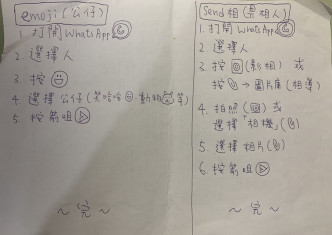 emoji (公仔)
1. 打開 WhatsApp
2. 選擇人
3. 按
4. 選擇公仔 (笑哈哈、動物等)
5. 按箭咀
～完～
Send相 (畀相人)
1. 打開 WhatsApp
2. 選擇人
3. 按 (影相) 或
按 → 圖片庫 (相簿)
4. 拍照 () 或
選擇「相機」()
5. 選擇相片 ()
6. 按箭咀
～完～